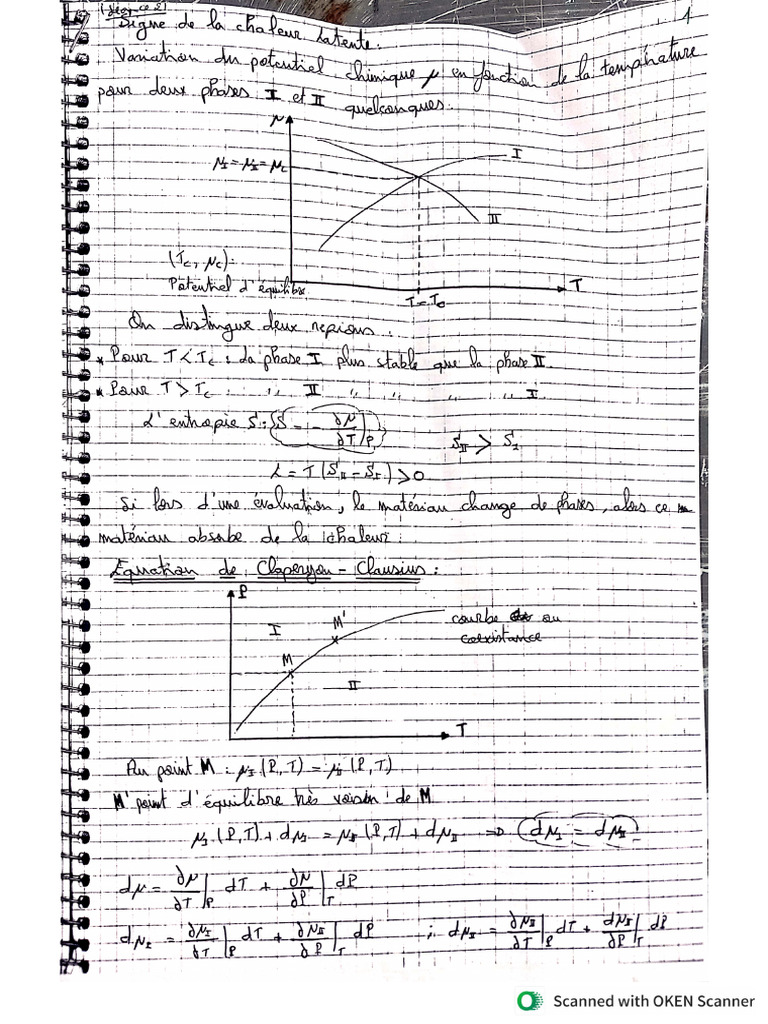 (Séance 2)
1
Signe de la chaleur latente.
Variation du potentiel chimique μ en fonction de la température
pour deux phases I et II quelconques.
μ
μ_I = μ_II = μ_c
I
II
(T_c, μ_c):
Potentiel d'équilibre
T = T_c
T
On distingue deux regions:
* Pour T < T_c : La phase I plus stable que la phase II.
* Pour T > T_c : ,, II ,, ,, ,, ,, I.
L'entropie S: {S = - ∂μ/∂T|_P} S_II > S_I
L = T (S_II - S_I) > 0
Si lors d'une évaluation, le matériau change de phases, alors ce
matériau absorbe de la chaleur.
Equation de Claperyon - Clausius:
P
I
M'
M
II
courbe au
coexistance
T
Au point M : μ_I (P,T) = μ_II (P,T)
M' point d'équilibre très voisin de M
μ_I (P,T) + dμ_I = μ_II (P,T) + dμ_II ⇒ dμ_I = dμ_II
dμ = ∂μ/∂T|_P dT + ∂μ/∂P|_T dP
dμ_I = ∂μ_I/∂T|_P dT + ∂μ_I/∂P|_T dP ; dμ_II = ∂μ_II/∂T|_P dT + ∂μ_II/∂P|_T dP
Scanned with OKEN Scanner